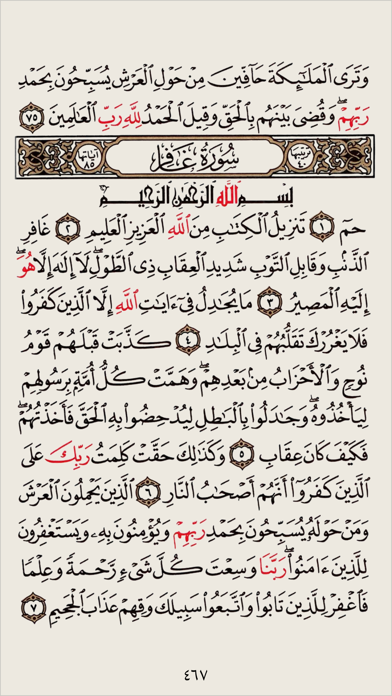 وَتَرَى ٱلْمَلَـٰٓئِكَةَ حَآفِّينَ مِنْ حَوْلِ ٱلْعَرْشِ يُسَبِّحُونَ بِحَمْدِ
رَبِّهِمْ ۖ وَقُضِىَ بَيْنَهُم بِٱلْحَقِّ وَقِيلَ ٱلْحَمْدُ لِلَّهِ رَبِّ ٱلْعَـٰلَمِينَ ٧٥
ترتيبها ٤٠ سُورَةُ غَافِر آياتها ٨٥
بِسْمِ ٱللَّهِ ٱلرَّحْمَـٰنِ ٱلرَّحِيمِ
حمٓ ١ تَنزِيلُ ٱلْكِتَـٰبِ مِنَ ٱللَّهِ ٱلْعَزِيزِ ٱلْعَلِيمِ ٢ غَافِرِ
ٱلذَّنۢبِ وَقَابِلِ ٱلتَّوْبِ شَدِيدِ ٱلْعِقَابِ ذِى ٱلطَّوْلِ ۖ لَآ إِلَـٰهَ إِلَّا هُوَ ۖ
إِلَيْهِ ٱلْمَصِيرُ ٣ مَا يُجَـٰدِلُ فِىٓ ءَايَـٰتِ ٱللَّهِ إِلَّا ٱلَّذِينَ كَفَرُوا۟
فَلَا يَغْرُرْكَ تَقَلُّبُهُمْ فِى ٱلْبِلَـٰدِ ٤ كَذَّبَتْ قَبْلَهُمْ قَوْمُ
نُوحٍ وَٱلْأَحْزَابُ مِنۢ بَعْدِهِمْ ۖ وَهَمَّتْ كُلُّ أُمَّةٍۭ بِرَسُولِهِمْ
لِيَأْخُذُوهُ ۖ وَجَـٰدَلُوا۟ بِٱلْبَـٰطِلِ لِيُدْحِضُوا۟ بِهِ ٱلْحَقَّ فَأَخَذْتُهُمْ ۖ
فَكَيْفَ كَانَ عِقَابِ ٥ وَكَذَٰلِكَ حَقَّتْ كَلِمَتُ رَبِّكَ عَلَى
ٱلَّذِينَ كَفَرُوٓا۟ أَنَّهُمْ أَصْحَـٰبُ ٱلنَّارِ ٦ ٱلَّذِينَ يَحْمِلُونَ ٱلْعَرْشَ
وَمَنْ حَوْلَهُۥ يُسَبِّحُونَ بِحَمْدِ رَبِّهِمْ وَيُؤْمِنُونَ بِهِۦ وَيَسْتَغْفِرُونَ
لِلَّذِينَ ءَامَنُوا۟ ۖ رَبَّنَا وَسِعْتَ كُلَّ شَىْءٍ رَّحْمَةً وَعِلْمًا
فَٱغْفِرْ لِلَّذِينَ تَابُوا۟ وَٱتَّبَعُوا۟ سَبِيلَكَ وَقِهِمْ عَذَابَ ٱلْجَحِيمِ ٧
٤٦٧